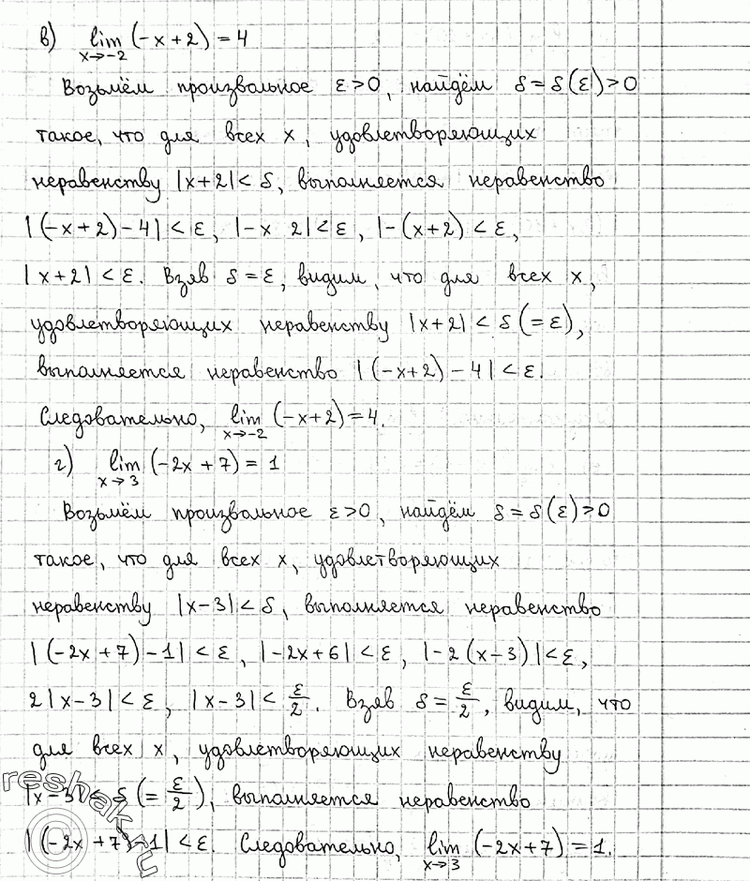 в) lim (-x+2) = 4
x→-2
Возьмём произвольное ε>0, найдём δ=δ(ε)>0
такое, что для всех x, удовлетворяющих
неравенству |x+2|<δ, выполняется неравенство
|(-x+2)-4|<ε, |-x 2|<ε, |-(x+2)<ε,
|x+2|<ε. Взяв δ=ε, видим, что для всех x,
удовлетворяющих неравенству |x+2|<δ(=ε),
выполняется неравенство |(-x+2)-4|<ε.
Следовательно, lim (-x+2)=4.
x→-2
г) lim (-2x+7) = 1
x→3
Возьмём произвольное ε>0, найдём δ=δ(ε)>0
такое, что для всех x, удовлетворяющих
неравенству |x-3|<δ, выполняется неравенство
|(-2x+7)-1|<ε, |-2x+6|<ε, |-2(x-3)|<ε,
2|x-3|<ε, |x-3|<ε/2. Взяв δ=ε/2, видим, что
для всех x, удовлетворяющих неравенству
|x-3|<δ(=ε/2), выполняется неравенство
|(-2x+7)-1|<ε. Следовательно, lim (-2x+7)=1.
x→3
reshak.ru